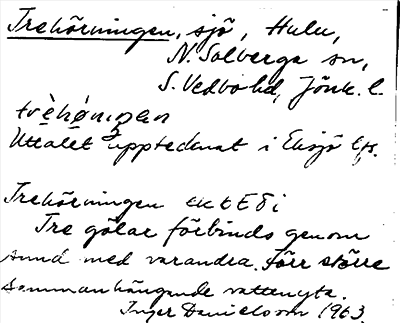 Trehörningen, sjö, Hulu,
N. Solberga sn,
S. Vedbo hd, Jönk. l.
trèhø̀ṇiŋan
Uttalet upptecknat i Eksjö lfs.
Trehörningen
Tre gölar förbinds genom
sund med varandra. Förr större
sammanhängande vattenyta.
Inger Danielsson 1963